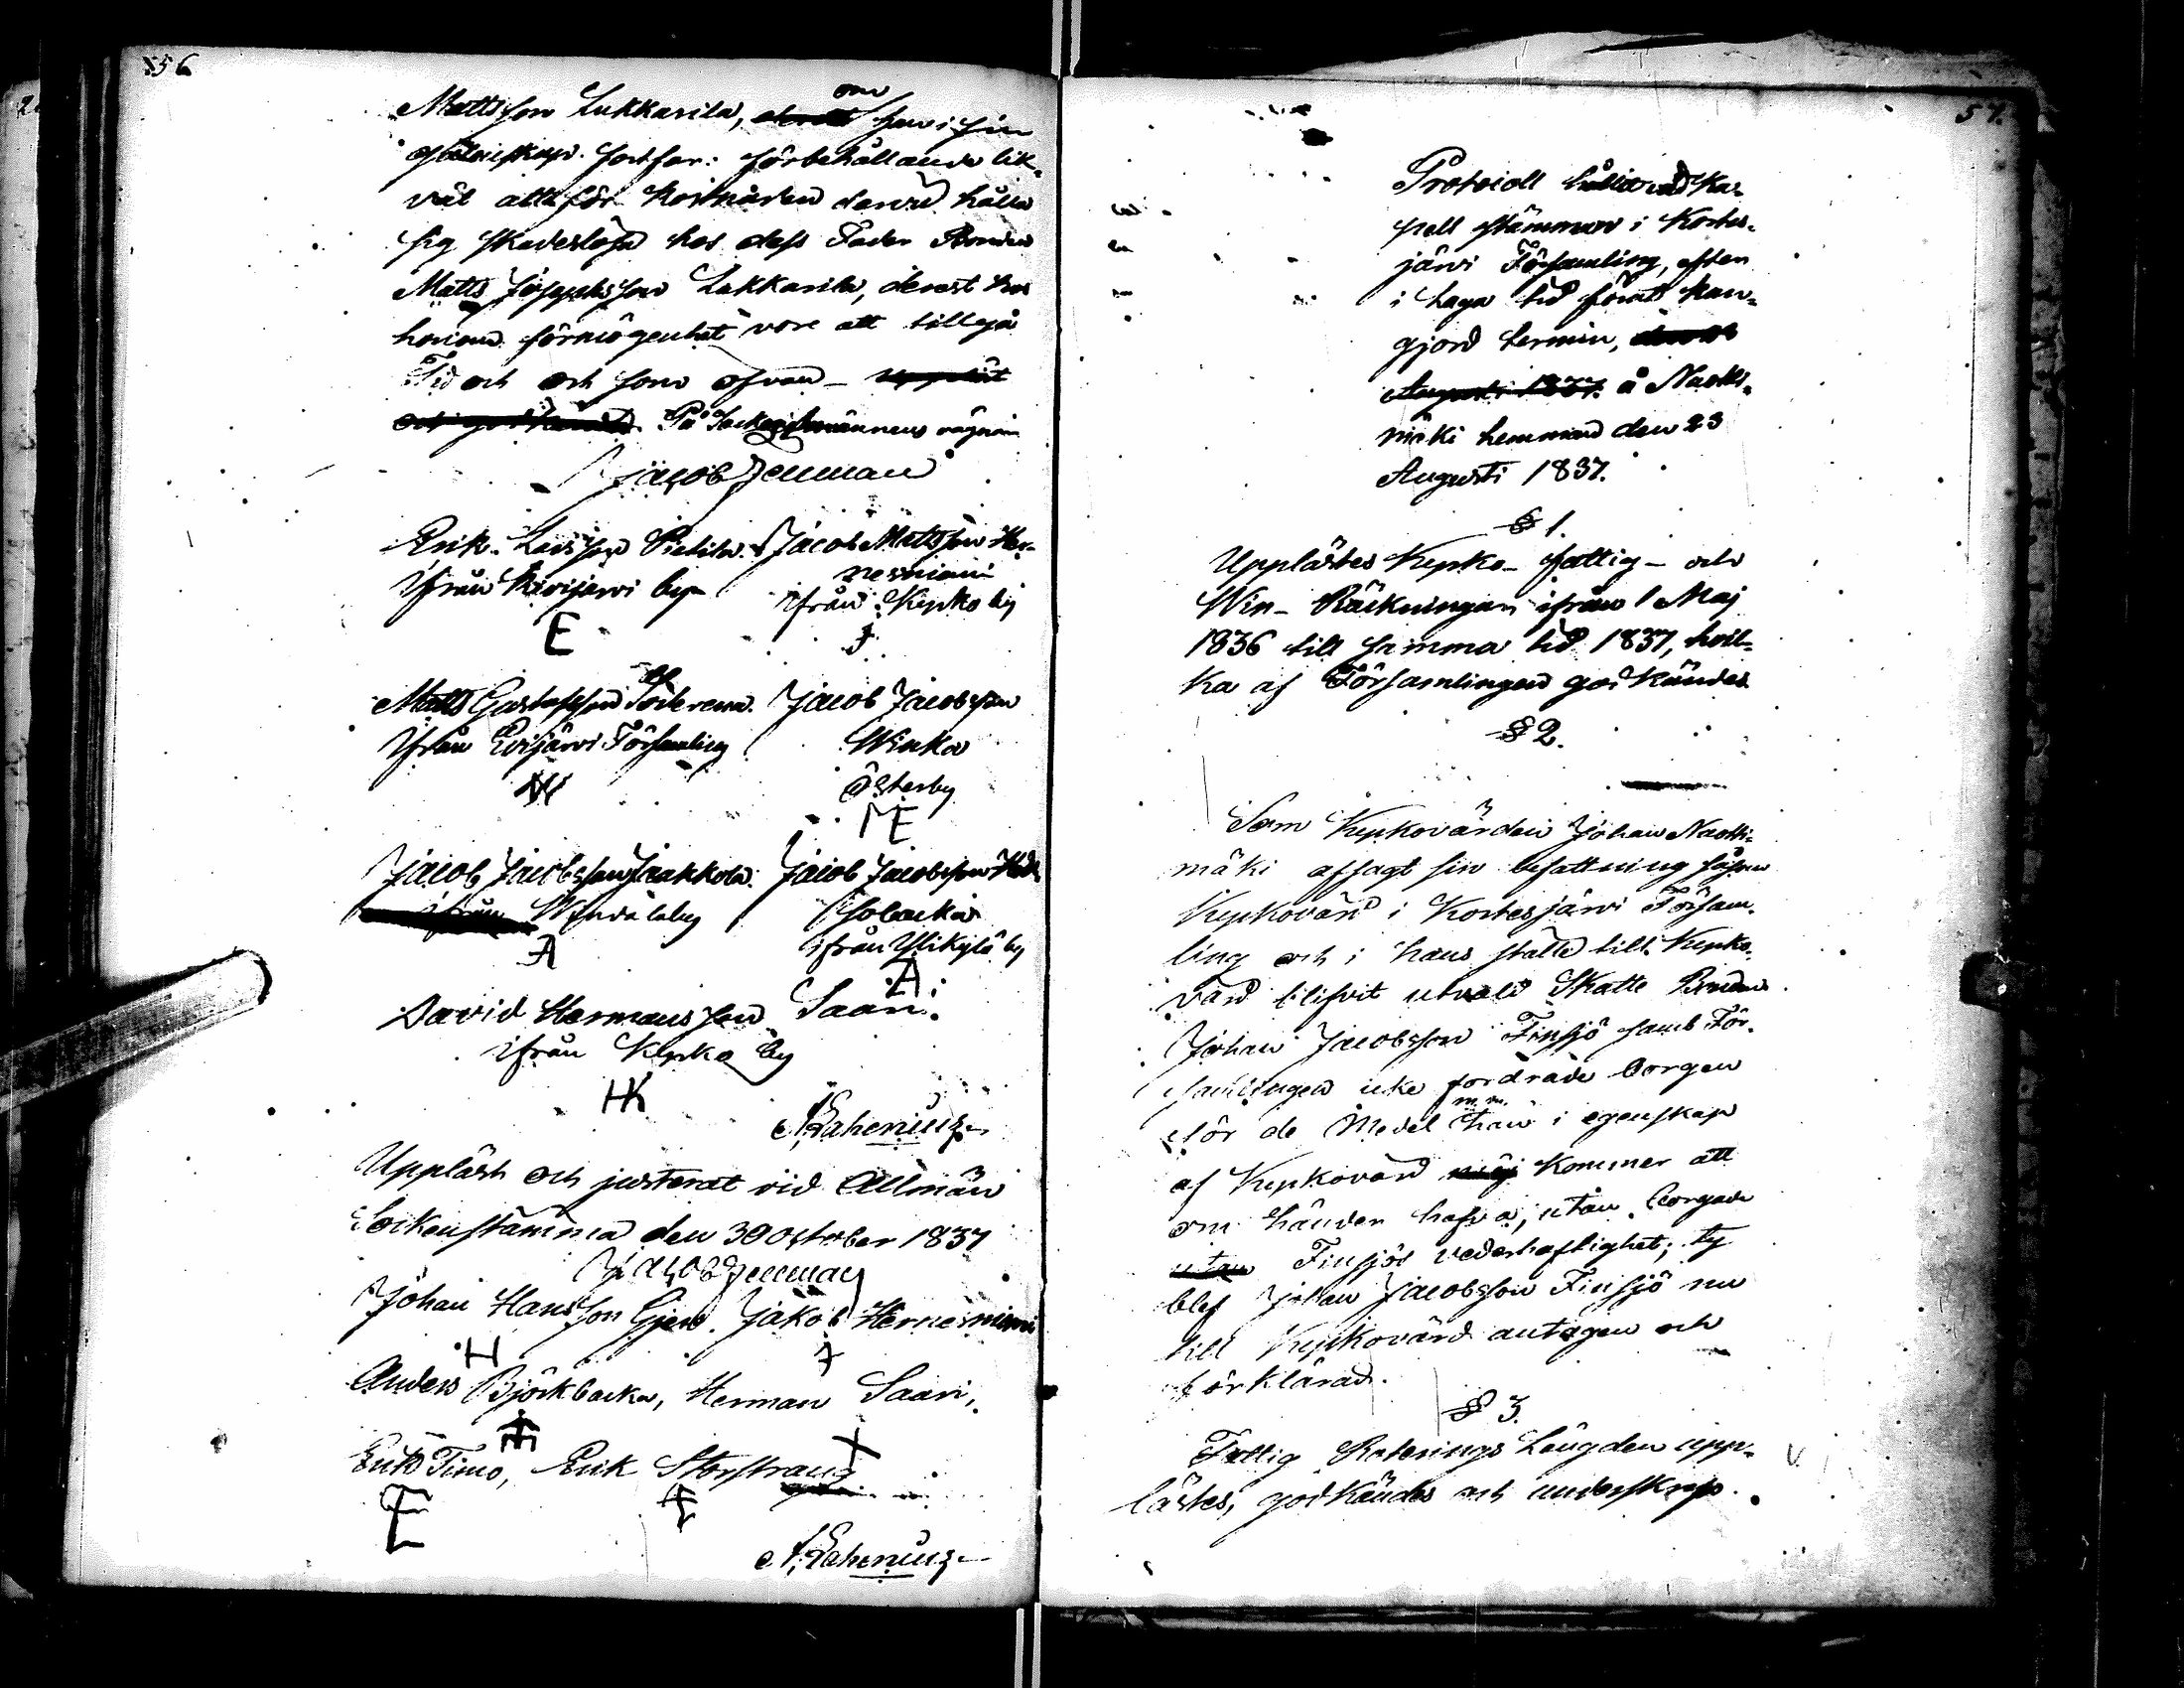 56
Mattsson Lukkarila, om han i sin
fortfar: förbehållande lik-
väl att för kostnaden dervid hålla
sig skadeslösa hos dess Fader Bonden
Matts Josephsson Lukkarila, derest hos
honom förmögenhet vore att tillgå
Tid och ort som ofvan –
På Sockenmännens vägnar
Jacob Jemman
Erik Larsson Pietila. Jacob Mattsson Her-
nesniemi
ifrån Kivijärvi by ifrån Kepko by
E J
Matts Gustafsson Söderena. Jacob Jacobsson
ifrån Evijärvi Församling Winka
Österby
ME
Jacob Jacobsson Jaakkola. Jacob Jacobsson
Windala by
ifrån Ylikylä by
A A
David Hermansson Saari.
ifrån Kepko by
HK
Uppläst och justerat vid Allmän
Sockenstämma den 30 October 1837
Jacob Jemman
Johan Hansson Jakob Hernesniemi
H J
Anders Björkbacka, Herman Saari,
X
Erik Timo, Erik Storstrang
E E
57.
Protocoll hållit vid Ka-
pell stämman i Kortes-
järvi Församling, efter
i laga tid förut kun-
gjord termin,
Augusti 1837. å Naotti-
mäki hemman den 23
Augusti 1837.
§ 1.
Upplästes Kyrko- fattig- och
Win- Räkningar ifrån 1 Maj
1836 till samma tid 1837, hvil-
ka af Församlingen godkändes
§ 2.
Som Kyrkovärden Johan Naotti-
mäki afsagt sin befattning såsom
Kyrkovärd i Kortesjärvi Försam-
ling och i hans ställe till Kyrko-
värd blifvit utvald Skatte Bonden
Johan Jacobsson Finsjö samt För-
samlingen icke fordrade borgen
för de Medel m.m. han i egenskap
af Kyrkovärd kommer att
om händer hafva, utan borgade
utan Finsjös vederhaftighet; ty
blef Johan Jacobsson Finsjö nu
till Kyrkovärd antagen och
förklarad.
§ 3.
Fattig Roterings Längden upp-
lästes, godkändes och underskrefs.